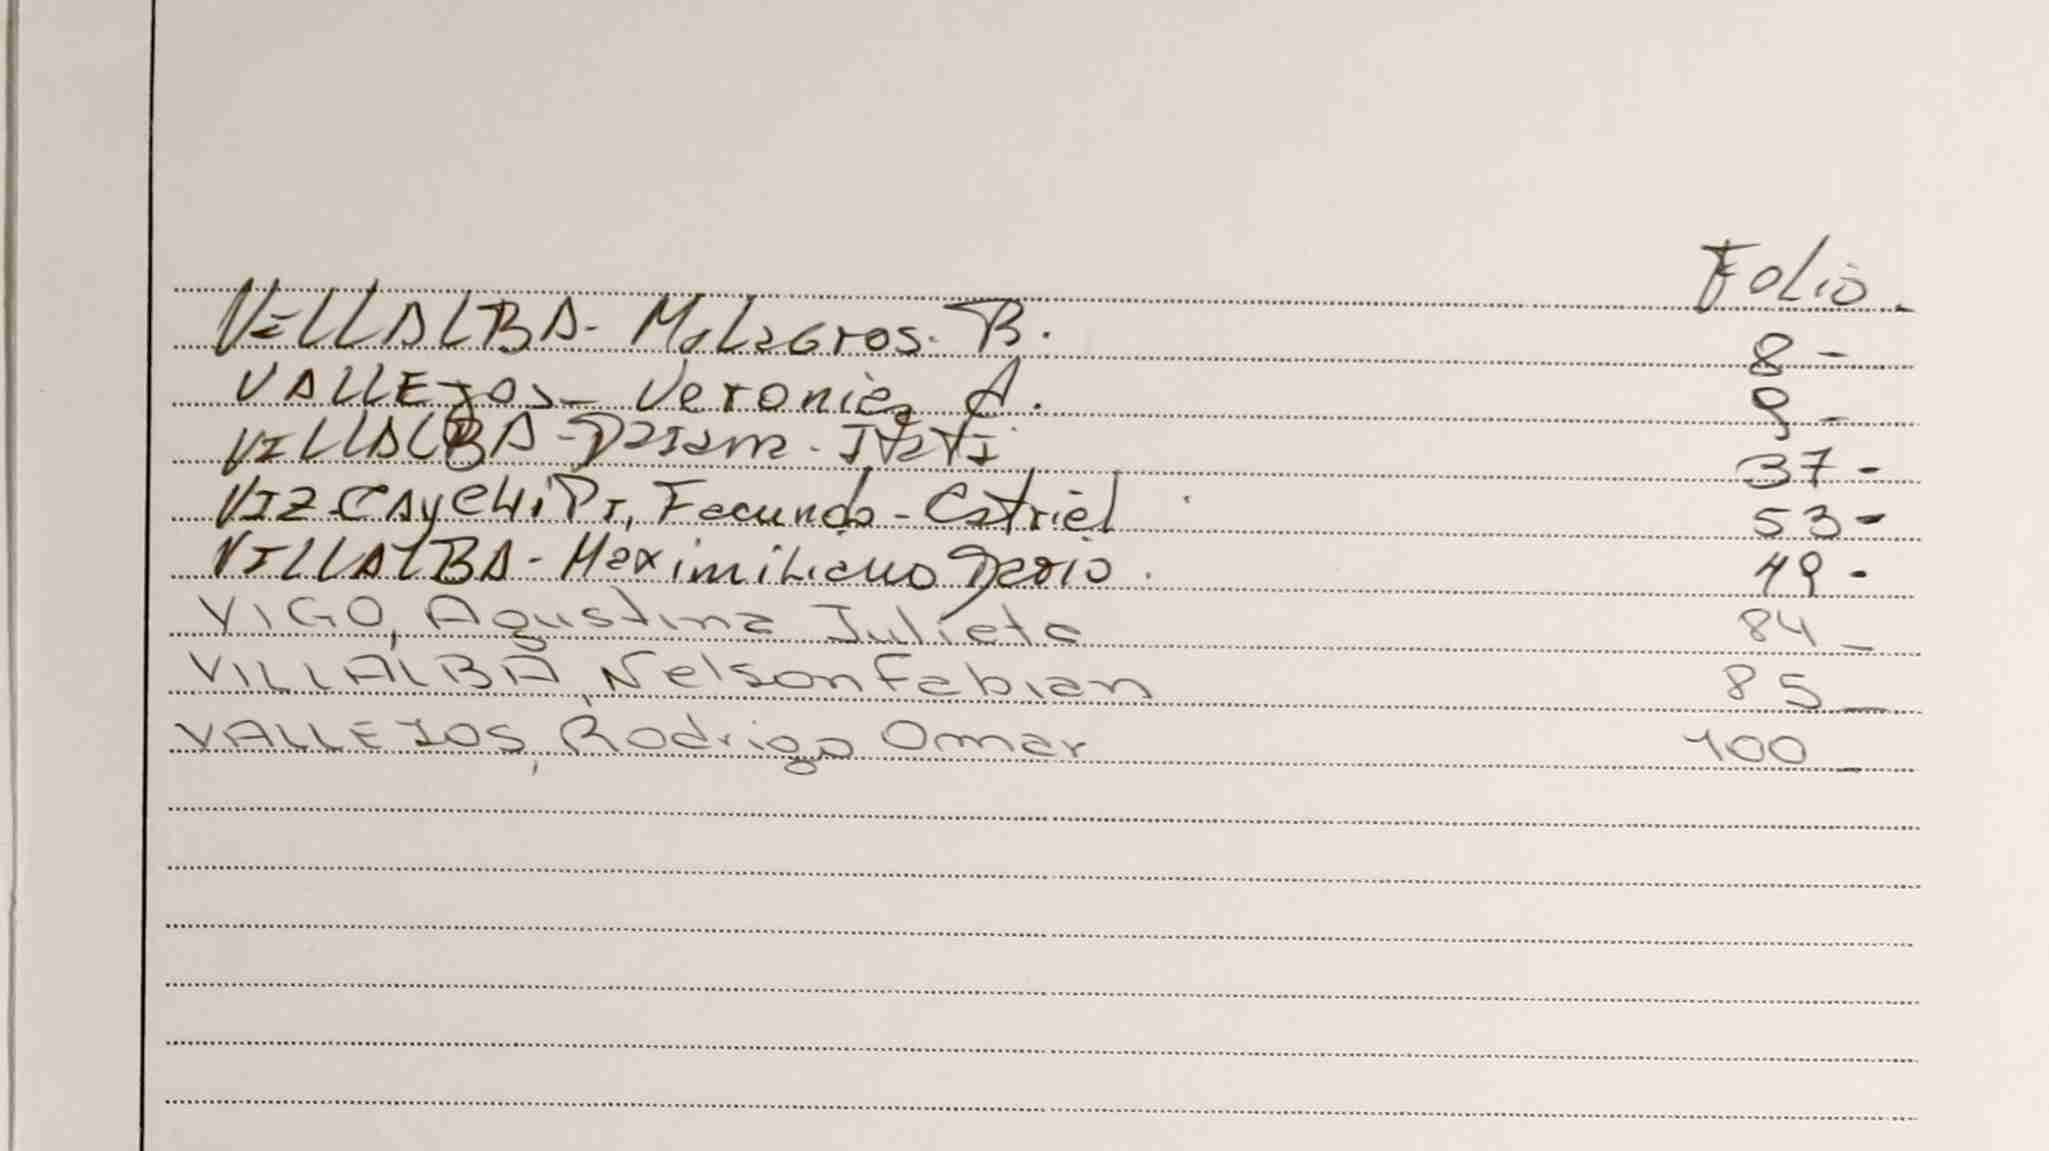 Folio
VILLALBA - Milagros. B. 8 -
VALLEJOS - Veronica A. 9 -
VILLALBA - Itati 37 -
VIZCAYCHIPI, Facundo - 53 -
VILLALBA - Maximiliano Dario. 49 -
VIGO, Agustina Julieta 84 _
VILLALBA, Nelson Fabian 85 _
VALLEJOS, Rodrigo Omar 100 _